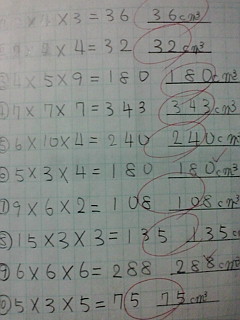 ×3=36 36cm³
×4=32 32cm³
③4×5×9=180 180cm³
④7×7×7=343 343cm³
⑤6×10×4=240 240cm³
⑥5×3×4=180 180cm³
⑦9×6×2=108 108cm³
⑧15×3×3=135 135cm³
⑨6×6×6=288 288cm³
⑩5×3×5=75 75cm³